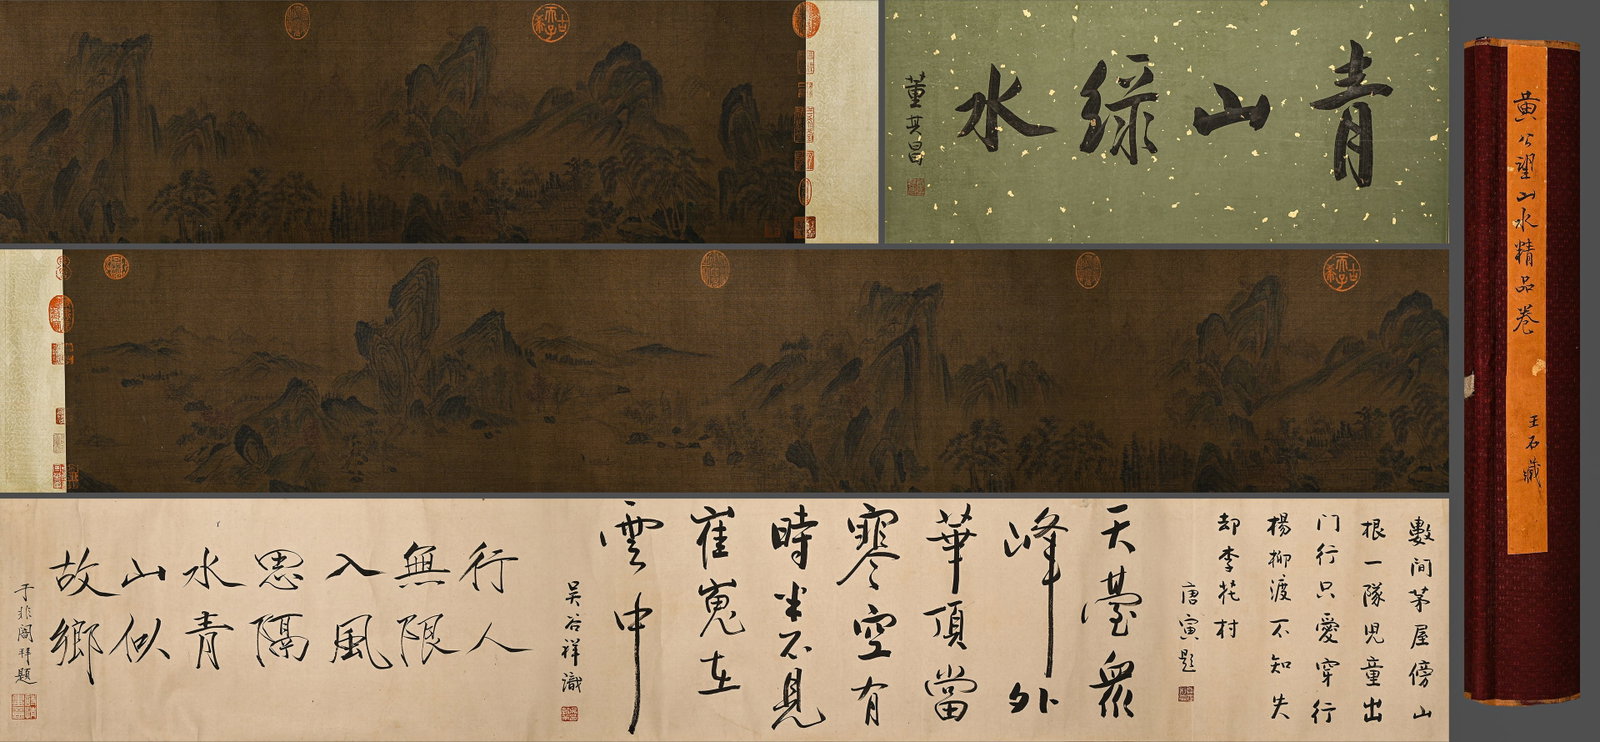 青山綠水
董其昌
黄公望山水精品卷
王石藏
數間茅屋傍山
根一隊児童出
门行只愛穿行
楊柳渡不知失
却李花村
唐寅題
天臺眾
峰外
華頂當
寒空有
時半不見
崔嵬在
雲中
吴谷祥識
行人
無限
入風
思隔
水青
山似
故鄉
于非闇拜題